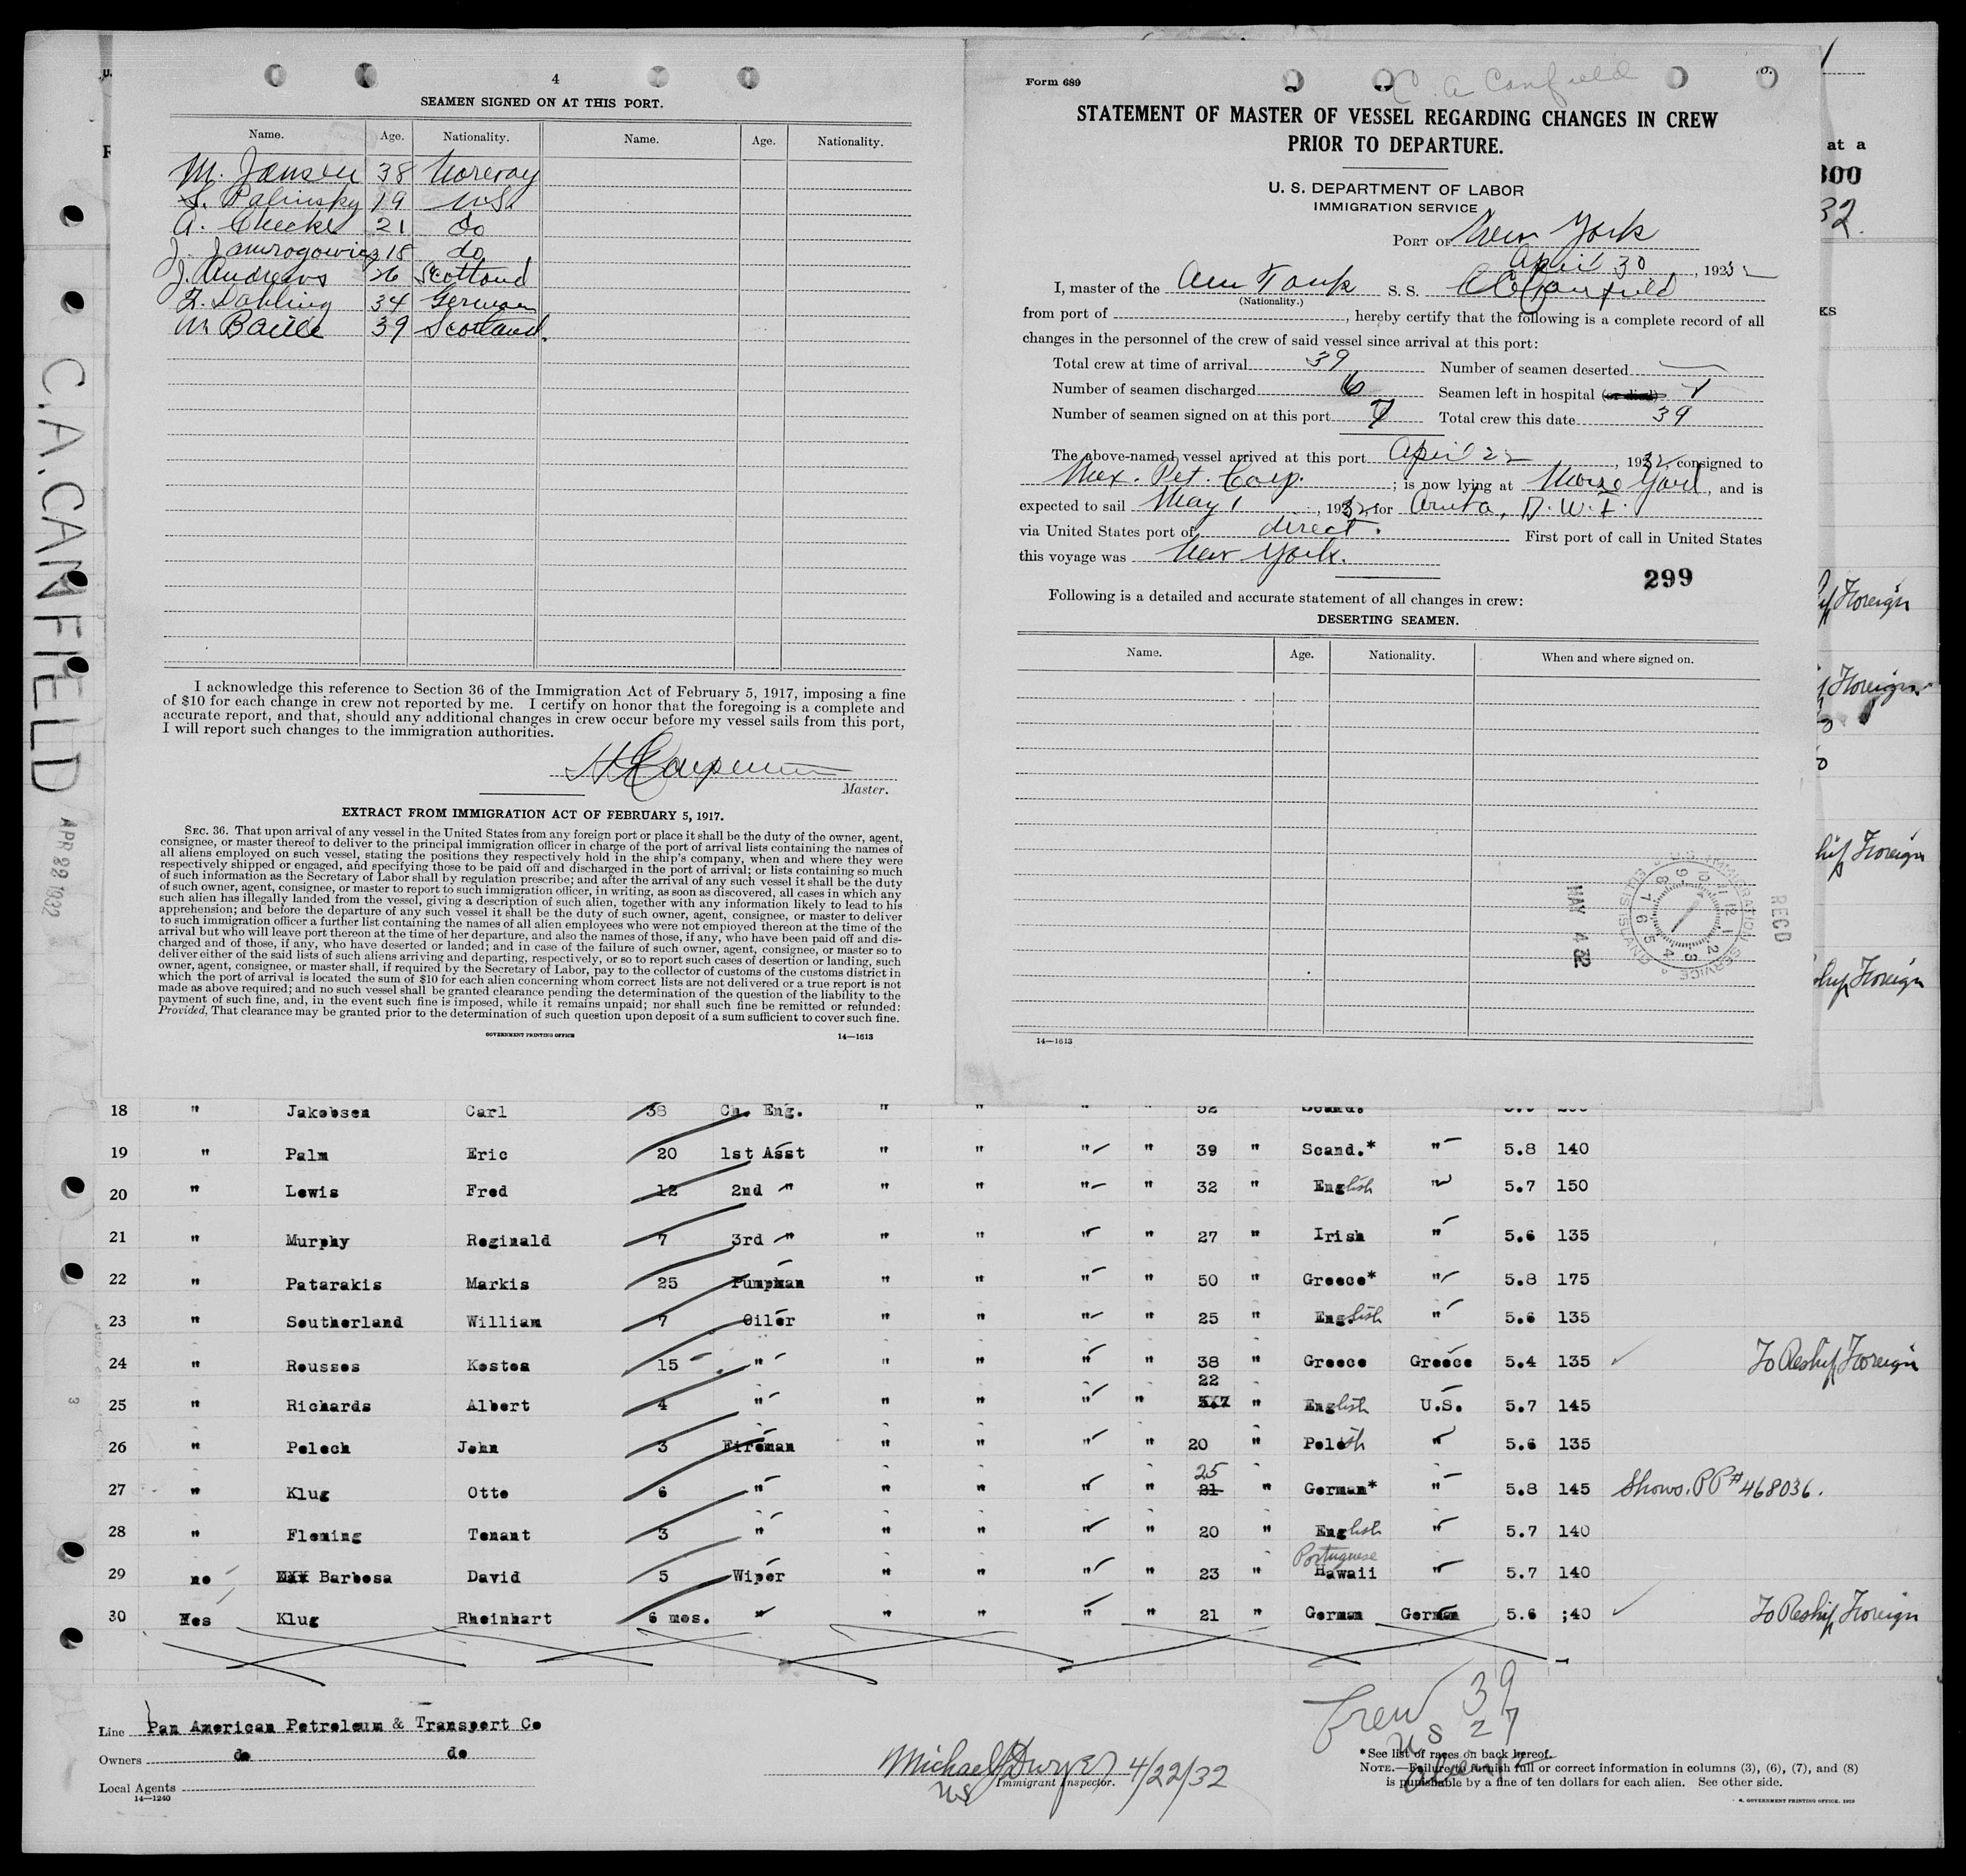 4
SEAMEN SIGNED ON AT THIS PORT.
Name. Age. Nationality. Name. Age. Nationality.
M. Jansen 38 Norway
S. Palinsky 19 U.S.
A. 21 do
J. Jamrogowicz 18 do
J. Andrews 26 Scotland
F. Dahling 34 German
W. Baille 39 Scotland.
I acknowledge this reference to Section 36 of the Immigration Act of February 5, 1917, imposing a fine
of $10 for each change in crew not reported by me. I certify on honor that the foregoing is a complete and
accurate report, and that, should any additional changes in crew occur before my vessel sails from this port,
I will report such changes to the immigration authorities.
Master.
EXTRACT FROM IMMIGRATION ACT OF FEBRUARY 5, 1917.
SEC. 36. That upon arrival of any vessel in the United States from any foreign port or place it shall be the duty of the owner, agent,
consignee, or master thereof to deliver to the principal immigration officer in charge of the port of arrival lists containing the names of
all aliens employed on such vessel, stating the positions they respectively hold in the ship's company, when and where they were
respectively shipped or engaged, and specifying those to be paid off and discharged in the port of arrival; or lists containing so much
of such information as the Secretary of Labor shall by regulation prescribe; and after the arrival of any such vessel it shall be the duty
of such owner, agent, consignee, or master to report to such immigration officer, in writing, as soon as discovered, all cases in which any
such alien has illegally landed from the vessel, giving a description of such alien, together with any information likely to lead to his
apprehension; and before the departure of any such vessel it shall be the duty of such owner, agent, consignee, or master to deliver
to such immigration officer a further list containing the names of all alien employees who were not employed thereon at the time of the
arrival but who will leave port thereon at the time of her departure, and also the names of those, if any, who have been paid off and dis-
charged and of those, if any, who have deserted or landed; and in case of the failure of such owner, agent, consignee, or master so to
deliver either of the said lists of such aliens arriving and departing, respectively, or so to report such cases of desertion or landing, such
owner, agent, consignee, or master shall, if required by the Secretary of Labor, pay to the collector of customs of the customs district in
which the port of arrival is located the sum of $10 for each alien concerning whom correct lists are not delivered or a true report is not
made as above required; and no such vessel shall be granted clearance pending the determination of the question of the liability to the
payment of such fine, and, in the event such fine is imposed, while it remains unpaid; nor shall such fine be remitted or refunded:
Provided, That clearance may be granted prior to the determination of such question upon deposit of a sum sufficient to cover such fine.
GOVERNMENT PRINTING OFFICE 14—1613
C.A. CANFIELD APR 22 1932
Form 689
C. A Canfield
STATEMENT OF MASTER OF VESSEL REGARDING CHANGES IN CREW
PRIOR TO DEPARTURE.
U. S. DEPARTMENT OF LABOR
IMMIGRATION SERVICE
PORT OF New York
April 30, 1932
I, master of the Am Tank S. S. C A Canfield
(Nationality.)
from port of , hereby certify that the following is a complete record of all
changes in the personnel of the crew of said vessel since arrival at this port:
Total crew at time of arrival 39 Number of seamen deserted —
Number of seamen discharged 6 Seamen left in hospital (or died) 1
Number of seamen signed on at this port 7 Total crew this date 39
The above-named vessel arrived at this port April 22, 1932, consigned to
Mex. Pet. Corp. ; is now lying at Morse Yard, and is
expected to sail May 1, 1932 for Aruba, D.W.I.
via United States port of direct. First port of call in United States
this voyage was New York.
299
Following is a detailed and accurate statement of all changes in crew:
DESERTING SEAMEN.
Name. Age. Nationality. When and where signed on.
RECD
MAY 4 32
U.S. IMMIGRATION SERVICE
14—1613
at a
300
32.
KS
Foreign
Foreign
Foreign
Foreign
18 " Jakobsen Carl 38 Ch. Eng. " " " " 52 " Scand.
19 " Palm Eric 20 1st Asst " " " " 39 " Scand.* " 5.8 140
20 " Lewis Fred 12 2nd " " " " " 32 " English " 5.7 150
21 " Murphy Reginald 7 3rd " " " " " 27 " Irish " 5.6 135
22 " Patarakis Markis 25 Pumpman " " " " 50 " Greece* " 5.8 175
23 " Southerland William 7 Oiler " " " " 25 " English " 5.6 135
24 " Rousses Kostea 15 " " " " " 38 " Greece Greece 5.4 135 To Reship Foreign
25 " Richards Albert 4 " " " " " 22 " English U.S. 5.7 145
26 " Peloch John 3 Fireman " " " " 20 " Polish " 5.6 135
27 " Klug Otto 6 " " " " " 25 21 " German* " 5.8 145 Shows. PP# 468036.
28 " Fleming Tenant 3 " " " " " 20 " English " 5.7 140
29 no Barbosa David 5 Wiper " " " " 23 " Portuguese Hawaii " 5.7 140
30 Yes Klug Rheinhart 6 mos. " " " " " 21 " German German 5.6 ;40 To Reship Foreign
Crew 39
US 27
Alien 12
Line Pan American Petroleum & Transport Co
Owners do do
Local Agents
14—1240
Michael J Dwyer 4/22/32
US Immigrant Inspector.
*See list of races on back hereof.
NOTE.—Failure to furnish full or correct information in columns (3), (6), (7), and (8)
is punishable by a fine of ten dollars for each alien. See other side.
GOVERNMENT PRINTING OFFICE.